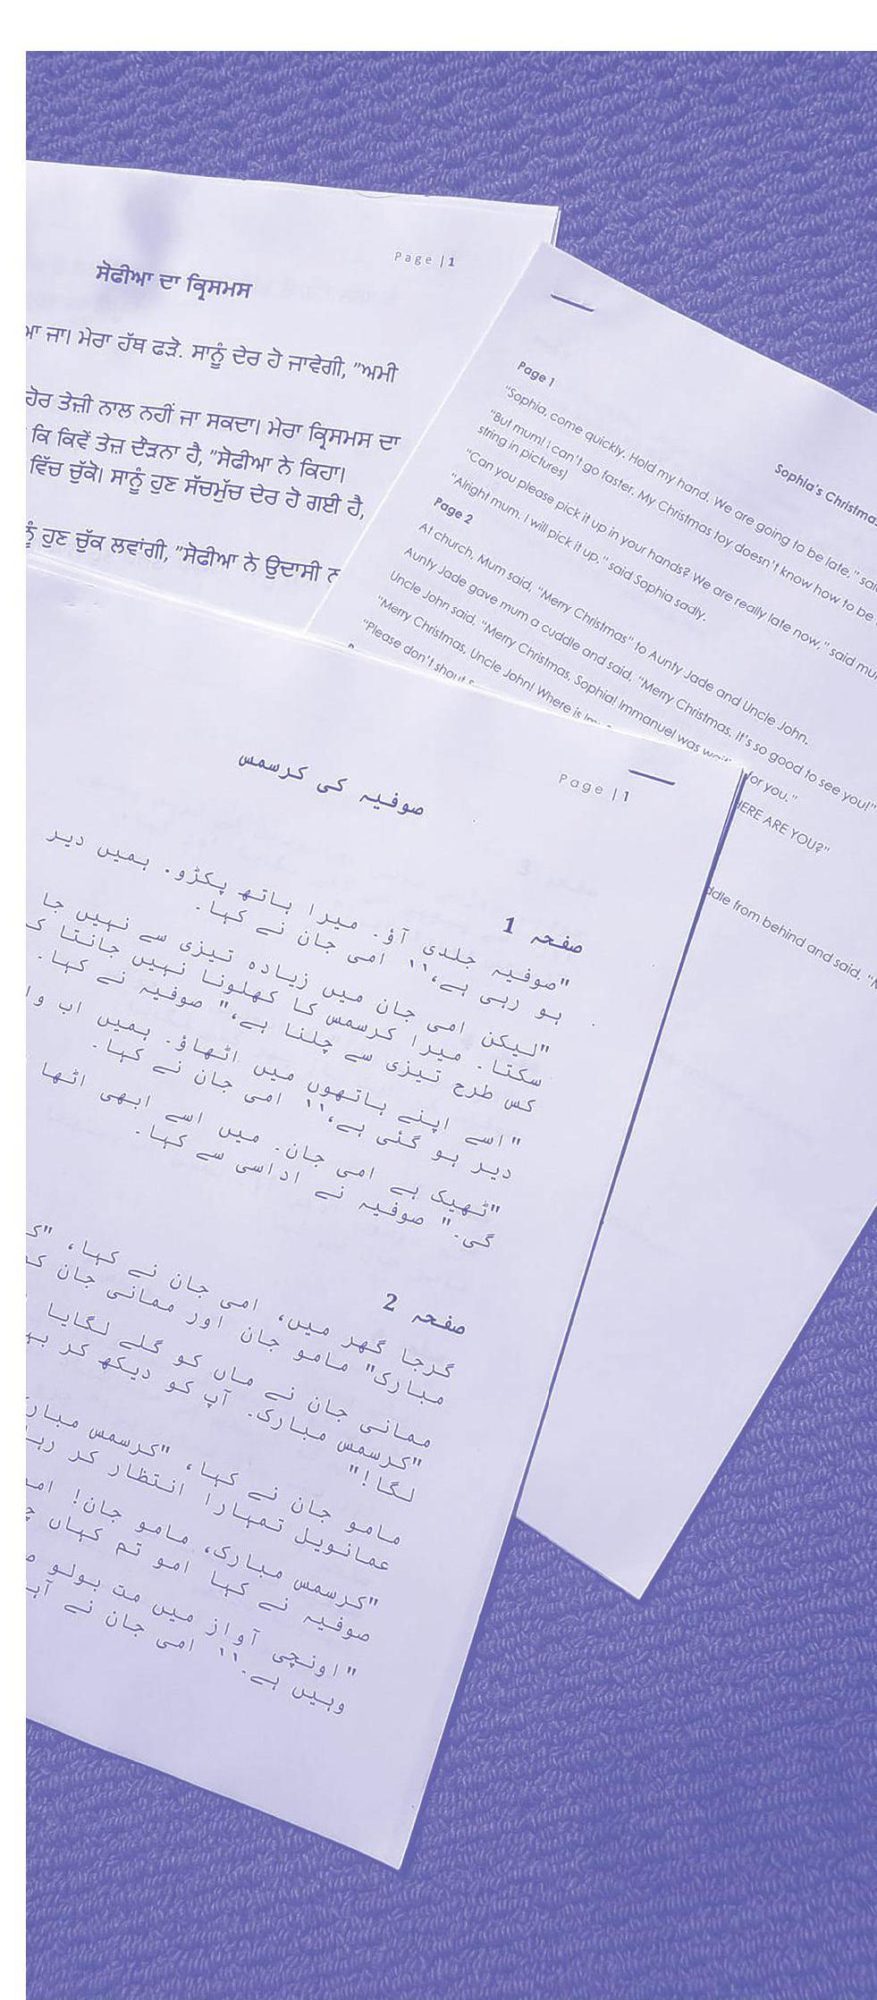 Page | 1
ਸੋਫੀਆ ਦਾ ਕ੍ਰਿਸਮਸ
ਆ ਜਾ। ਮੇਰਾ ਹੱਥ ਫੜੋ. ਸਾਨੂੰ ਦੇਰ ਹੋ ਜਾਵੇਗੀ, ”ਅਮੀ
ਹੋਰ ਤੇਜ਼ੀ ਨਾਲ ਨਹੀਂ ਜਾ ਸਕਦਾ। ਮੇਰਾ ਕ੍ਰਿਸਮਸ ਦਾ
ਕਿ ਕਿਵੇਂ ਤੇਜ਼ ਦੌੜਨਾ ਹੈ, ”ਸੋਫੀਆ ਨੇ ਕਿਹਾ।
ਵਿੱਚ ਚੁੱਕੋ। ਸਾਨੂੰ ਹੁਣ ਸੱਚਮੁੱਚ ਦੇਰ ਹੋ ਗਈ ਹੈ,
ਹੁਣ ਚੁੱਕ ਲਵਾਂਗੀ, ”ਸੋਫੀਆ ਨੇ ਉਦਾਸੀ
Sophia's Christmas
Page 1
"Sophia, come quickly. Hold my hand. We are going to be late," said
"But mum! I can't go faster. My Christmas toy doesn't know how to be
string in pictures)
"Can you please pick it up in your hands? We are really late now," said mum
"Alright mum. I will pick it up," said Sophia sadly.
Page 2
At church, Mum said, "Merry Christmas" to Aunty Jade and Uncle John.
Aunty Jade gave mum a cuddle and said, "Merry Christmas, it's so good to see you!"
Uncle John said, "Merry Christmas, Sophia! Immanuel was waiting for you."
"Merry Christmas, Uncle John! Where is ERE ARE YOU?"
"Please don't shout
from behind and said, "
Page | 1
صوفیہ کی کرسمس
صفحہ 1
"صوفیہ جلدی آؤ. میرا ہاتھ پکڑو. ہمیں دیر
ہو رہی ہے،'' امی جان نے کہا.
"لیکن امی جان میں زیادہ تیزی سے نہیں جا
سکتا. میرا کرسمس کا کھلونا نہیں جانتا
کس طرح تیزی سے چلنا ہے،" صوفیہ نے کہا.
"اسے اپنے ہاتھوں میں اٹھاؤ. ہمیں اب
دیر ہو گئی ہے،'' امی جان نے کہا.
"ٹھیک ہے امی جان. میں اسے ابھی اٹھا
گی." صوفیہ نے اداسی سے کہا.
صفحہ 2
گرجا گھر میں، امی جان نے کہا،
مبارک" مامو جان اور ممانی جان
ممانی جان نے ماں کو گلے لگایا
"کرسمس مبارک. آپ کو دیکھ کر
لگا!"
مامو جان نے کہا، "کرسمس
عمانویل تمہارا انتظار کر
"کرسمس مبارک، مامو جان!
صوفیہ نے کہا امو تم کہاں
"اونچی آواز میں مت بولو
وہیں ہے.'' امی جان نے